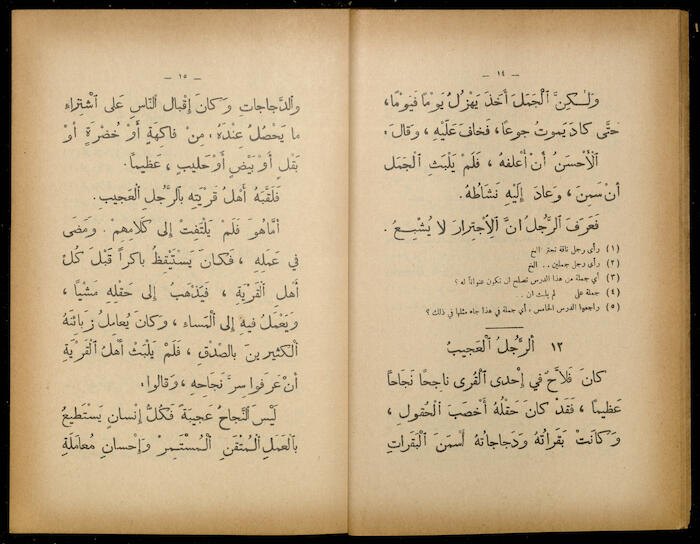 — ١٤ —
وَلٰكِنَّ ٱلْجَمَلَ أَخَذَ يَهْزُلُ يَوْمًا فَيَوْمًا،
حَتَّى كَادَ يَمُوتُ جوعًا، فَخافَ عَلَيْهِ، وَقالَ:
ٱلْأَحْسَنُ أَنْ أَعْلِفَهُ، فَلَمْ يَلْبَثِ ٱلْجَمَلُ
أَنْ سَمِنَ، وَعادَ إِلَيْهِ نَشَاطُهُ.
فَعَرَفَ ٱلرَّجُلُ انَّ ٱلِٱجْتِرارَ لا يُشْبِعُ.
(١) رأى رجل ناقة تجتر الخ
(٢) رأى رجل جملين .. الخ
(٣) أي جملة من هذا الدرس تصلح ان تكون عنواناً له ؟
(٤) جملة على لم يلبث ان ..
(٥) راجعوا الدرس الخامس، أي جملة في هذا جاء مثلها في ذلك ؟
١٣ اَلرَّجُلُ ٱلْعَجِيبُ
كانَ فَلَّاحٌ في إِحْدى ٱلْقُرى ناجِحًا نَجَاحًا
عَظيمًا، فَقَدْ كانَ حَقْلُهُ أَخْصَبَ ٱلْحُقولِ،
وَكَانَتْ بَقَراتُهُ وَدَجاجاتُهُ أَسْمَنَ ٱلْبَقَراتِ
— ١٥ —
وٱلدَّجاجاتِ وَكانَ إِقْبالُ ٱلنَّاسِ عَلى ٱشْتِراءِ
ما يَحْصُلُ عِنْدَهُ، مِنْ فاكِهَةٍ أَوْ خُضْرَةٍ أَوْ
بَقْلٍ أَوْ بَيْضٍ أَوْ حَليبٍ، عَظيمًا.
فَلَقَّبَهُ أَهْلُ قَرْيَتِهِ بِٱلرَّجُلِ ٱلْعَجيبِ.
أَمَّا هُوَ فَلَمْ يَلْتَفِتْ إِلى كَلامِهِمْ. وَمَضَى
في عَمَلِهِ، فَكانَ يَسْتَيْقِظُ باكِرًا قَبْلَ كُلِّ
أَهْلِ ٱلْقَرْيَةِ، فَيَذْهَبُ إِلى حَقْلِهِ مَشْيًا،
وَيَعْمَلُ فيهِ إِلى ٱلْمَساءِ، وَكانَ يُعامِلُ زَبائِنَهُ
ٱلْكَثيرينَ بِالصِّدْقِ، فَلَمْ يَلْبَثْ أَهْلُ ٱلْقَرْيَةِ
أَنْ عَرَفوا سِرَّ نَجاحِهِ، وَقالوا:
لَيْسَ ٱلنَّجَاحُ عَجيبَةً فَكُلُّ إِنْسانٍ يَسْتَطيعُ
بِٱلْعَمَلِ ٱلْمُتْقَنِ ٱلْمُسْتَمِرِّ وَإِحْسانِ مُعامَلَةِ